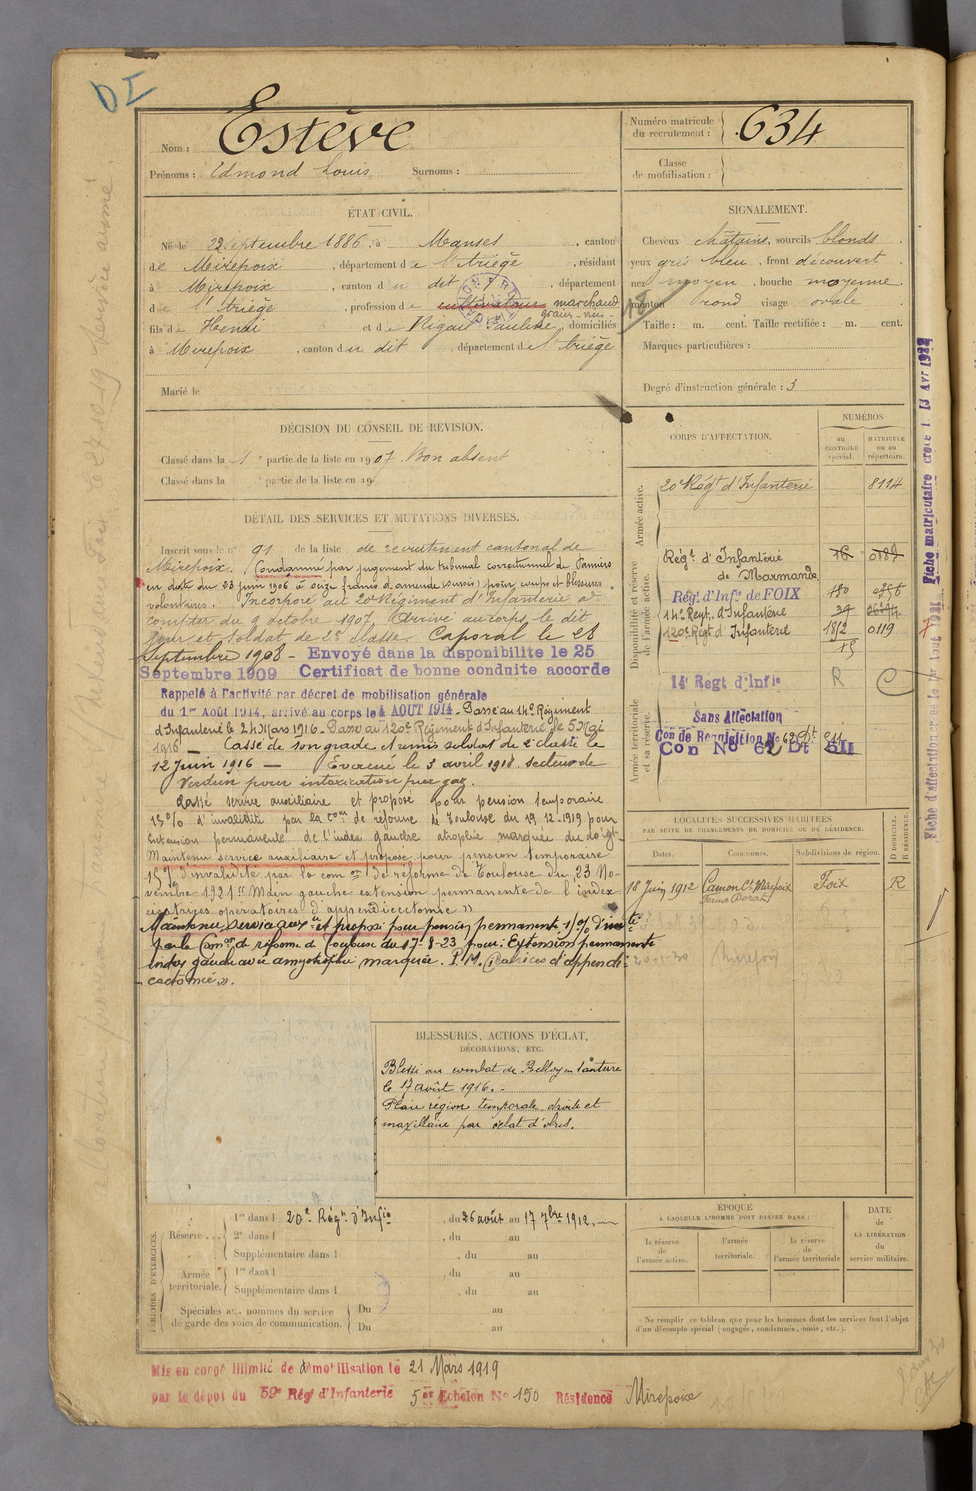 DI
Nom : Estève
Prénoms : Edmond Louis Surnoms :
Numéro matricule du recrutement : 634
Classe de mobilisation :
ÉTAT CIVIL.
Né le 22 septembre 1886, à Manses, canton
de Mirepoix, département de l'Ariège, résidant
à Mirepoix, canton du dit, département
de l'Ariège, profession de cultivateur marchand
grains - vins
fils de Henri et de Rigaut Pauline, domiciliés
à Mirepoix, canton du dit département de l'Ariège
Marié le
SIGNALEMENT.
Cheveux châtains, sourcils blonds
yeux gris bleu, front découvert
nez moyen, bouche moyenne
menton rond visage ovale
Taille : m. cent. Taille rectifiée : m. cent.
Marques particulières :
Degré d'instruction générale : 3
DÉCISION DU CONSEIL DE REVISION.
Classé dans la 1e partie de la liste en 1907. Bon absent
Classé dans la partie de la liste en 19
DÉTAIL DES SERVICES ET MUTATIONS DIVERSES.
Inscrit sous le n° 91 de la liste de recrutement cantonal de
Mirepoix. Condamné par jugement du tribunal correctionnel de Pamiers
en date du 23 juin 1906 à seize francs d'amende (sursis) pour coups et blessures
volontaires. Incorporé au 20e Régiment d'Infanterie à
compter du 9 octobre 1907, Arrivé au corps le dit
jour et soldat de 2e classe. Caporal le 28
Septembre 1908 - Envoyé dans la disponibilité le 25
Septembre 1909 Certificat de bonne conduite accordé
Rappelé à l'activité par décret de mobilisation générale
du 1er Août 1914, arrivé au corps le 4 AOUT 1914 - Passé au 14e Régiment
d'Infanterie le 24 Mars 1916 - Passé au 120e Régiment d'Infanterie le 5 Mai
1916 — Cassé de son grade et remis soldat de 2e classe le
12 Juin 1916 — Evacué le 3 avril 1918, secteur de
Verdun pour intoxication par gaz.
Classé service auxiliaire et proposé pour pension temporaire
15% d'invalidité par la Com on de réforme de Toulouse du 19.12.1919 pour
Extension permanente de l'index gauche atrophie marquée du doigt -
Maintenu service auxiliaire et proposé pour pension temporaire
15% d'invalidité par la com on de réforme de Toulouse du 23 No-
vembre 1921 "Main gauche extension permanente de l'index
cicatrices opératoires d'appendicectomie"
Maintenu service aux re et proposé pour pension permanente 15% d'invté
par la Com on de réforme de Toulouse du 17-8-23 pour : Extension permanente
index gauche avec amyotrophie marquée. P.M. Cicatrices d'appendi-
cectomie".
CORPS D'AFFECTATION.
NUMÉROS
au CONTRÔLE spécial.
MATRICULE ou au répertoire.
Armée active.
20e Régt d'Infanterie 8114
Disponibilité et réserve de l'armée active.
Régt d'Infanterie
de Marmande
Régt d'Infie de FOIX
14e Regt. d'Infanterie
120e Régt d'Infanterie 18/2 0119
14e Regt d'Infie R
Armée territoriale et sa réserve.
Sans Affectation
Con de Requisition No 62 Dt 211
Con No 62 Dt 511
LOCALITÉS SUCCESSIVES HABITÉES
PAR SUITE DE CHANGEMENTS DE DOMICILE OU DE RÉSIDENCE.
Dates. Communes. Subdivisions de région. D DOMICILE. R RÉSIDENCE.
18 Juin 1912 Camon Ct Mirepoix Foix R
Mirepoix
BLESSURES, ACTIONS D'ÉCLAT,
DÉCORATIONS, ETC.
Blessé au combat de Belloy en Santerre
le 17 août 1916. -
Plaie région temporale droite et
maxillaire par éclat d'obus.
PÉRIODES D'EXERCICES.
Réserve... 1re dans l 20e Régt d'Infie, du 26 août au 17 7bre 1912.
2e dans l , du au
Supplémentaire dans l , du au
Armée territoriale. 1re dans l , du au
Supplémentaire dans l , du au
Spéciales aux hommes du service
de garde des voies de communication.
Du au
Du au
ÉPOQUE
À LAQUELLE L'HOMME DOIT PASSER DANS :
la réserve de l'armée active.
l'armée territoriale.
la réserve de l'armée territoriale
DATE de LA LIBÉRATION du service militaire.
Ne remplir ce tableau que pour les hommes dont les services font l'objet
d'un décompte spécial (engagés, condamnés, omis, etc.).
Mis en congé illimité de démobilisation le 21 Mars 1919
par le dépot du 59e Rég d'Infanterie 5e Echelon No 150 Résidence Mirepoix
Fiche matriculaire créée le 13 Avr 1922
Fiche d'affectation créée le 1er Aout 1921